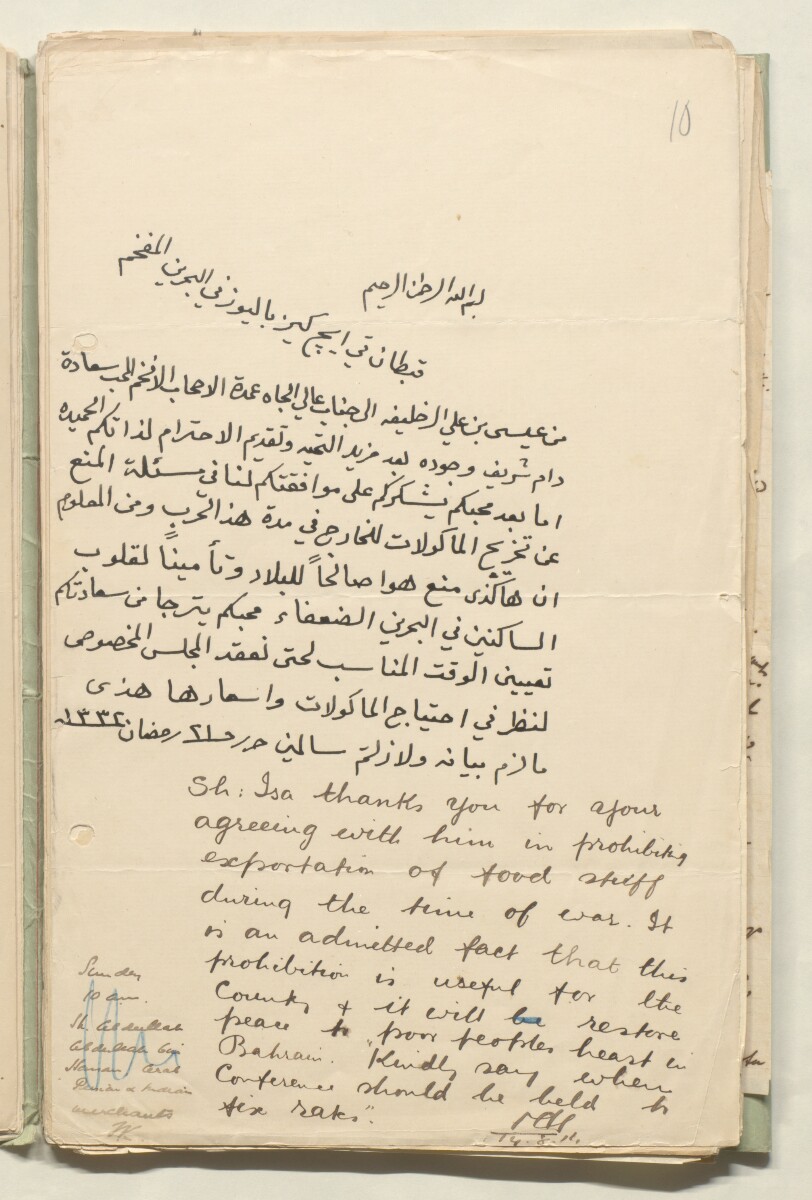 10
بسم الله الرحمن الرحيم
قبطان تي ايچ كيز باليوز في البحرين المفخم
من عيسى بن علي الخليفه الى جناب عالي الجاه عمدة الاصحاب الافخم المحب سعادة
دام شريف وجوده بعد مزيد التحيه وتقديم الاحترام لذاتكم الحميده
اما بعد محبكم يشكركم على موافقتكم لنا في مسئلة المنع
عن تخريج الماكولات للخارج في مدة هذا الحرب ومن المعلوم
ان هاكذى منع هوا صالحاً للبلاد وتأميناً لقلوب
الساكنين في البحرين الضعفاء محبكم يترجا من سعادتكم
تعيين الوقت المناسب لحتى نعقد المجلس المخصوص
لنظر في احتياج الماكولات واسعارها هذى
مالزم بيانه ولازلتم سالمين حرر ٢١ رمضان ١٣٣٢
Sh: Isa thanks you for your
agreeing with him in prohibiting
exportation of food stuff
during the time of war. It
is an admitted fact that this
prohibition is useful for the
Country & it will be restore
peace to poor peoples heart in
Bahrain. "Kindly say when
Conference should be held to
fix rates".
14.8.14
Sunday
10 am.
Sh Abdullah
Abdullah bin
Hasan Arab
Persian & Indian
merchants